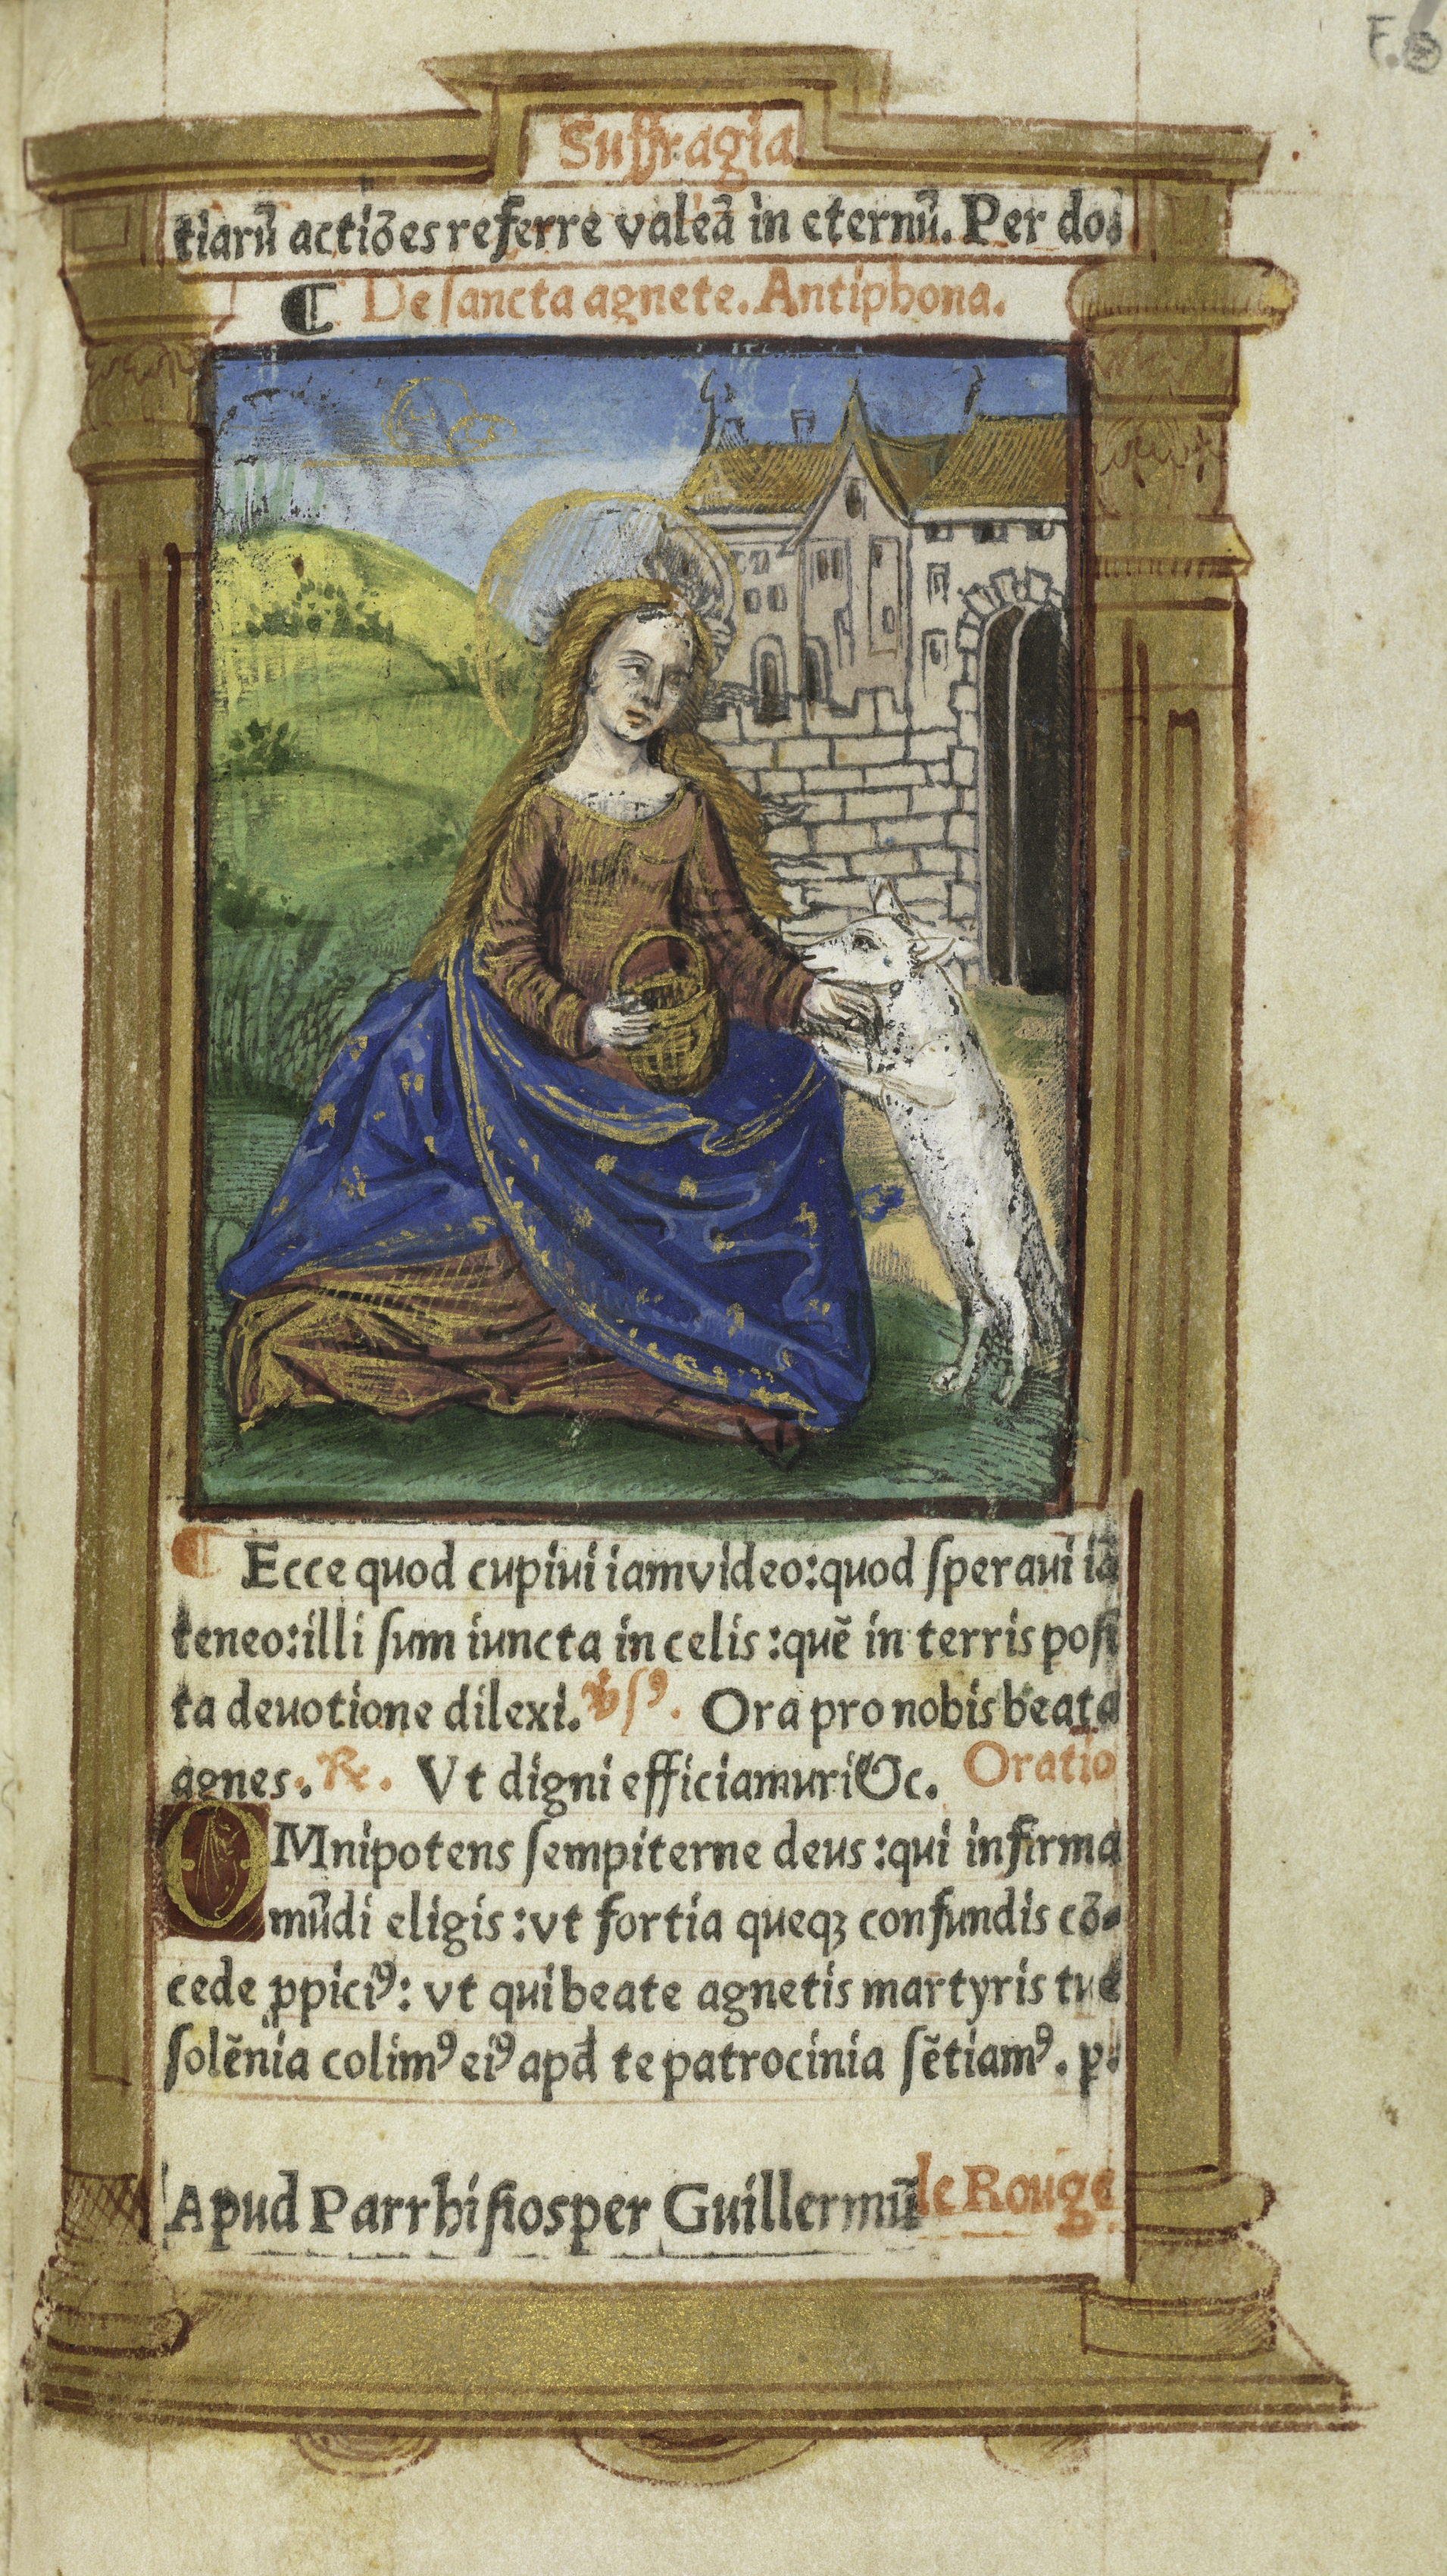 Suffragia
tiarū actiōes referre valeā in eternū. Per do
¶ De ſancta agnete. Antiphona.
¶ Ecce quod cupiui iam video: quod ſperaui iā
teneo: illi ſum iuncta in celis: quē in terris poſi
ta deuotione dilexi. ℣ſꝰ. Ora pro nobis beata
agnes. ℟. Vt digni efficiamur &c. Oratio
OMnipotens ſempiterne deus: qui infirma
mūdi eligis: vt fortia queqꝫ confundis cō-
cede ꝓpiciꝰ: vt qui beate agnetis martyris tue
ſolēnia colimꝰ eiꝰ apd te patrocinia ſētiamꝰ. p.
Apud Parrhiſios per Guillermū le Rouge